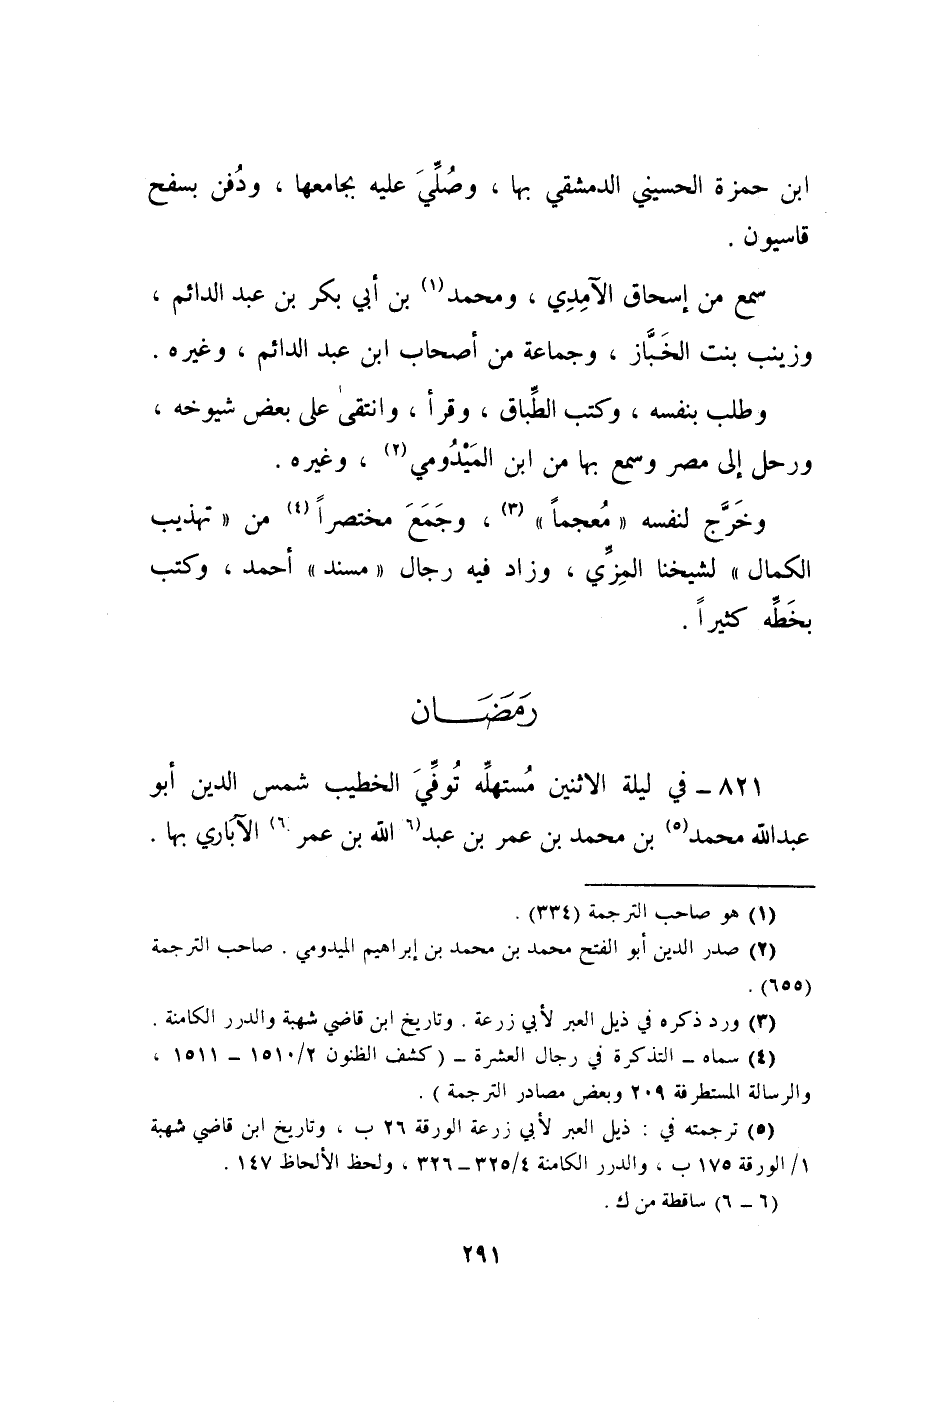 ابن حمزة الحسيني الدمشقي بها ، وصُلِّيَ عليه بجامعها ، ودُفن بسفح
قاسيون .
سمع من إسحاق الآمِدِي ، ومحمد(١) بن أبي بكر بن عبد الدائم ،
وزينب بنت الخَبَّاز ، وجماعة من أصحاب ابن عبد الدائم ، وغيره .
وطلب بنفسه ، وكتب الطِّباق ، وقرأ ، وانتقىٰ على بعض شيوخه ،
ورحل إلى مصر وسمع بها من ابن المَيْدُومي(٢) ، وغيره .
وخَرَّج لنفسه « مُعجماً » (٣) ، وجَمَعَ مختصراً(٤) من « تهذيب
الكمال » لشيخنا المِزِّي ، وزاد فيه رجال « مسند » أحمد ، وكتب
بخَطِّه كثيراً .
رَمَضَـــان
٨٢١ ـ في ليلة الاثنين مُستهلِّه تُوفِّيَ الخطيب شمس الدين أبو
عبدالله محمد(٥) بن محمد بن عمر بن عبد(٦ الله بن عمر ٦) الآبَاري بها .
(١) هو صاحب الترجمة (٣٣٤) .
(٢) صدر الدين أبو الفتح محمد بن محمد بن إبراهيم الميدومي . صاحب الترجمة
(٦٥٥) .
(٣) ورد ذكره في ذيل العبر لأبي زرعة . وتاريخ ابن قاضي شهبة والدرر الكامنة .
(٤) سماه ـ التذكرة في رجال العشرة ـ (كشف الظنون ١٥١٠/٢ ـ ١٥١١ ،
والرسالة المستطرفة ٢٠٩ وبعض مصادر الترجمة ) .
(٥) ترجمته في : ذيل العبر لأبي زرعة الورقة ٢٦ ب ، وتاريخ ابن قاضي شهبة
١/ الورقة ١٧٥ ب ، والدرر الكامنة ٣٢٥/٤ـ٣٢٦ ، ولحظ الألحاظ ١٤٧ .
(٦ ـ ٦) ساقطة من ك .
٢٩١